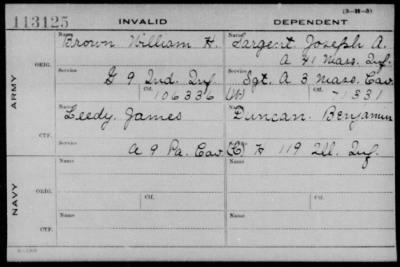 (3-II-3)
113125 INVALID DEPENDENT
ARMY
ORIG.
Name Brown William H.
Name Sargent Joseph A.
A 41 Mass. Inf.
Service G 9 Ind. Inf
Service Sgt. A 3 Mass. Cav
Ctf. 106336
(W) Ctf. -1331
CTF.
Name Leedy, James
Name Duncan. Benjamin
Service A 9 Pa. Cav
Service (C) H 119 Ill. Inf.
NAVY
ORIG.
Name
Ctf.
Name
Ctf.
CTF.
Name
Name